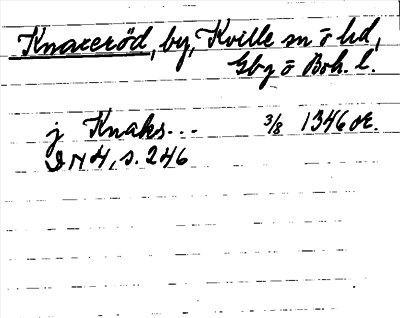 Knaxeröd, by, Kville sn o hd,
Gbg o Boh. l.
j Knaks... 3/8 1346 or.
DN 4, s. 246